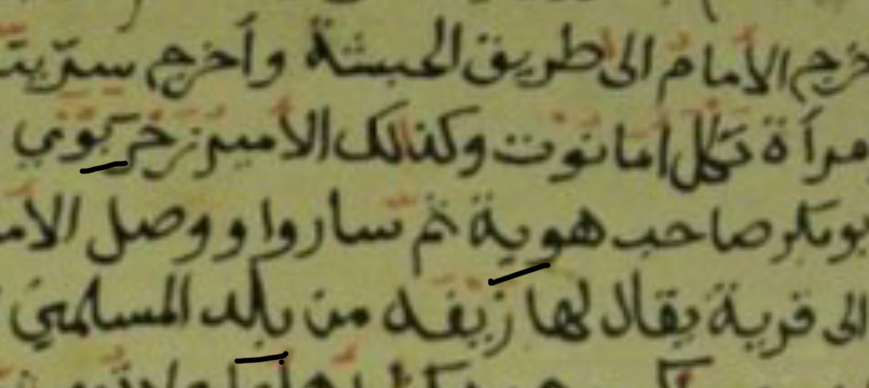 خرج الأمام الى طريق الحبشة وأخرج سريته
مرأة تكل أمانوت وكذلك الأمير زخربوني
بوبكر صاحب هوبة ثم ساروا ووصل الأم
الى قرية يقال لها زيفه من بلد المسلمين